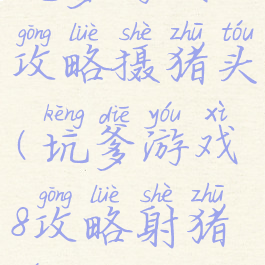 gōng lüè shè zhū tóu
攻略摄猪头
kēng diē yóu xì
(坑爹游戏
gōng lüè shè zhū
8攻略射猪